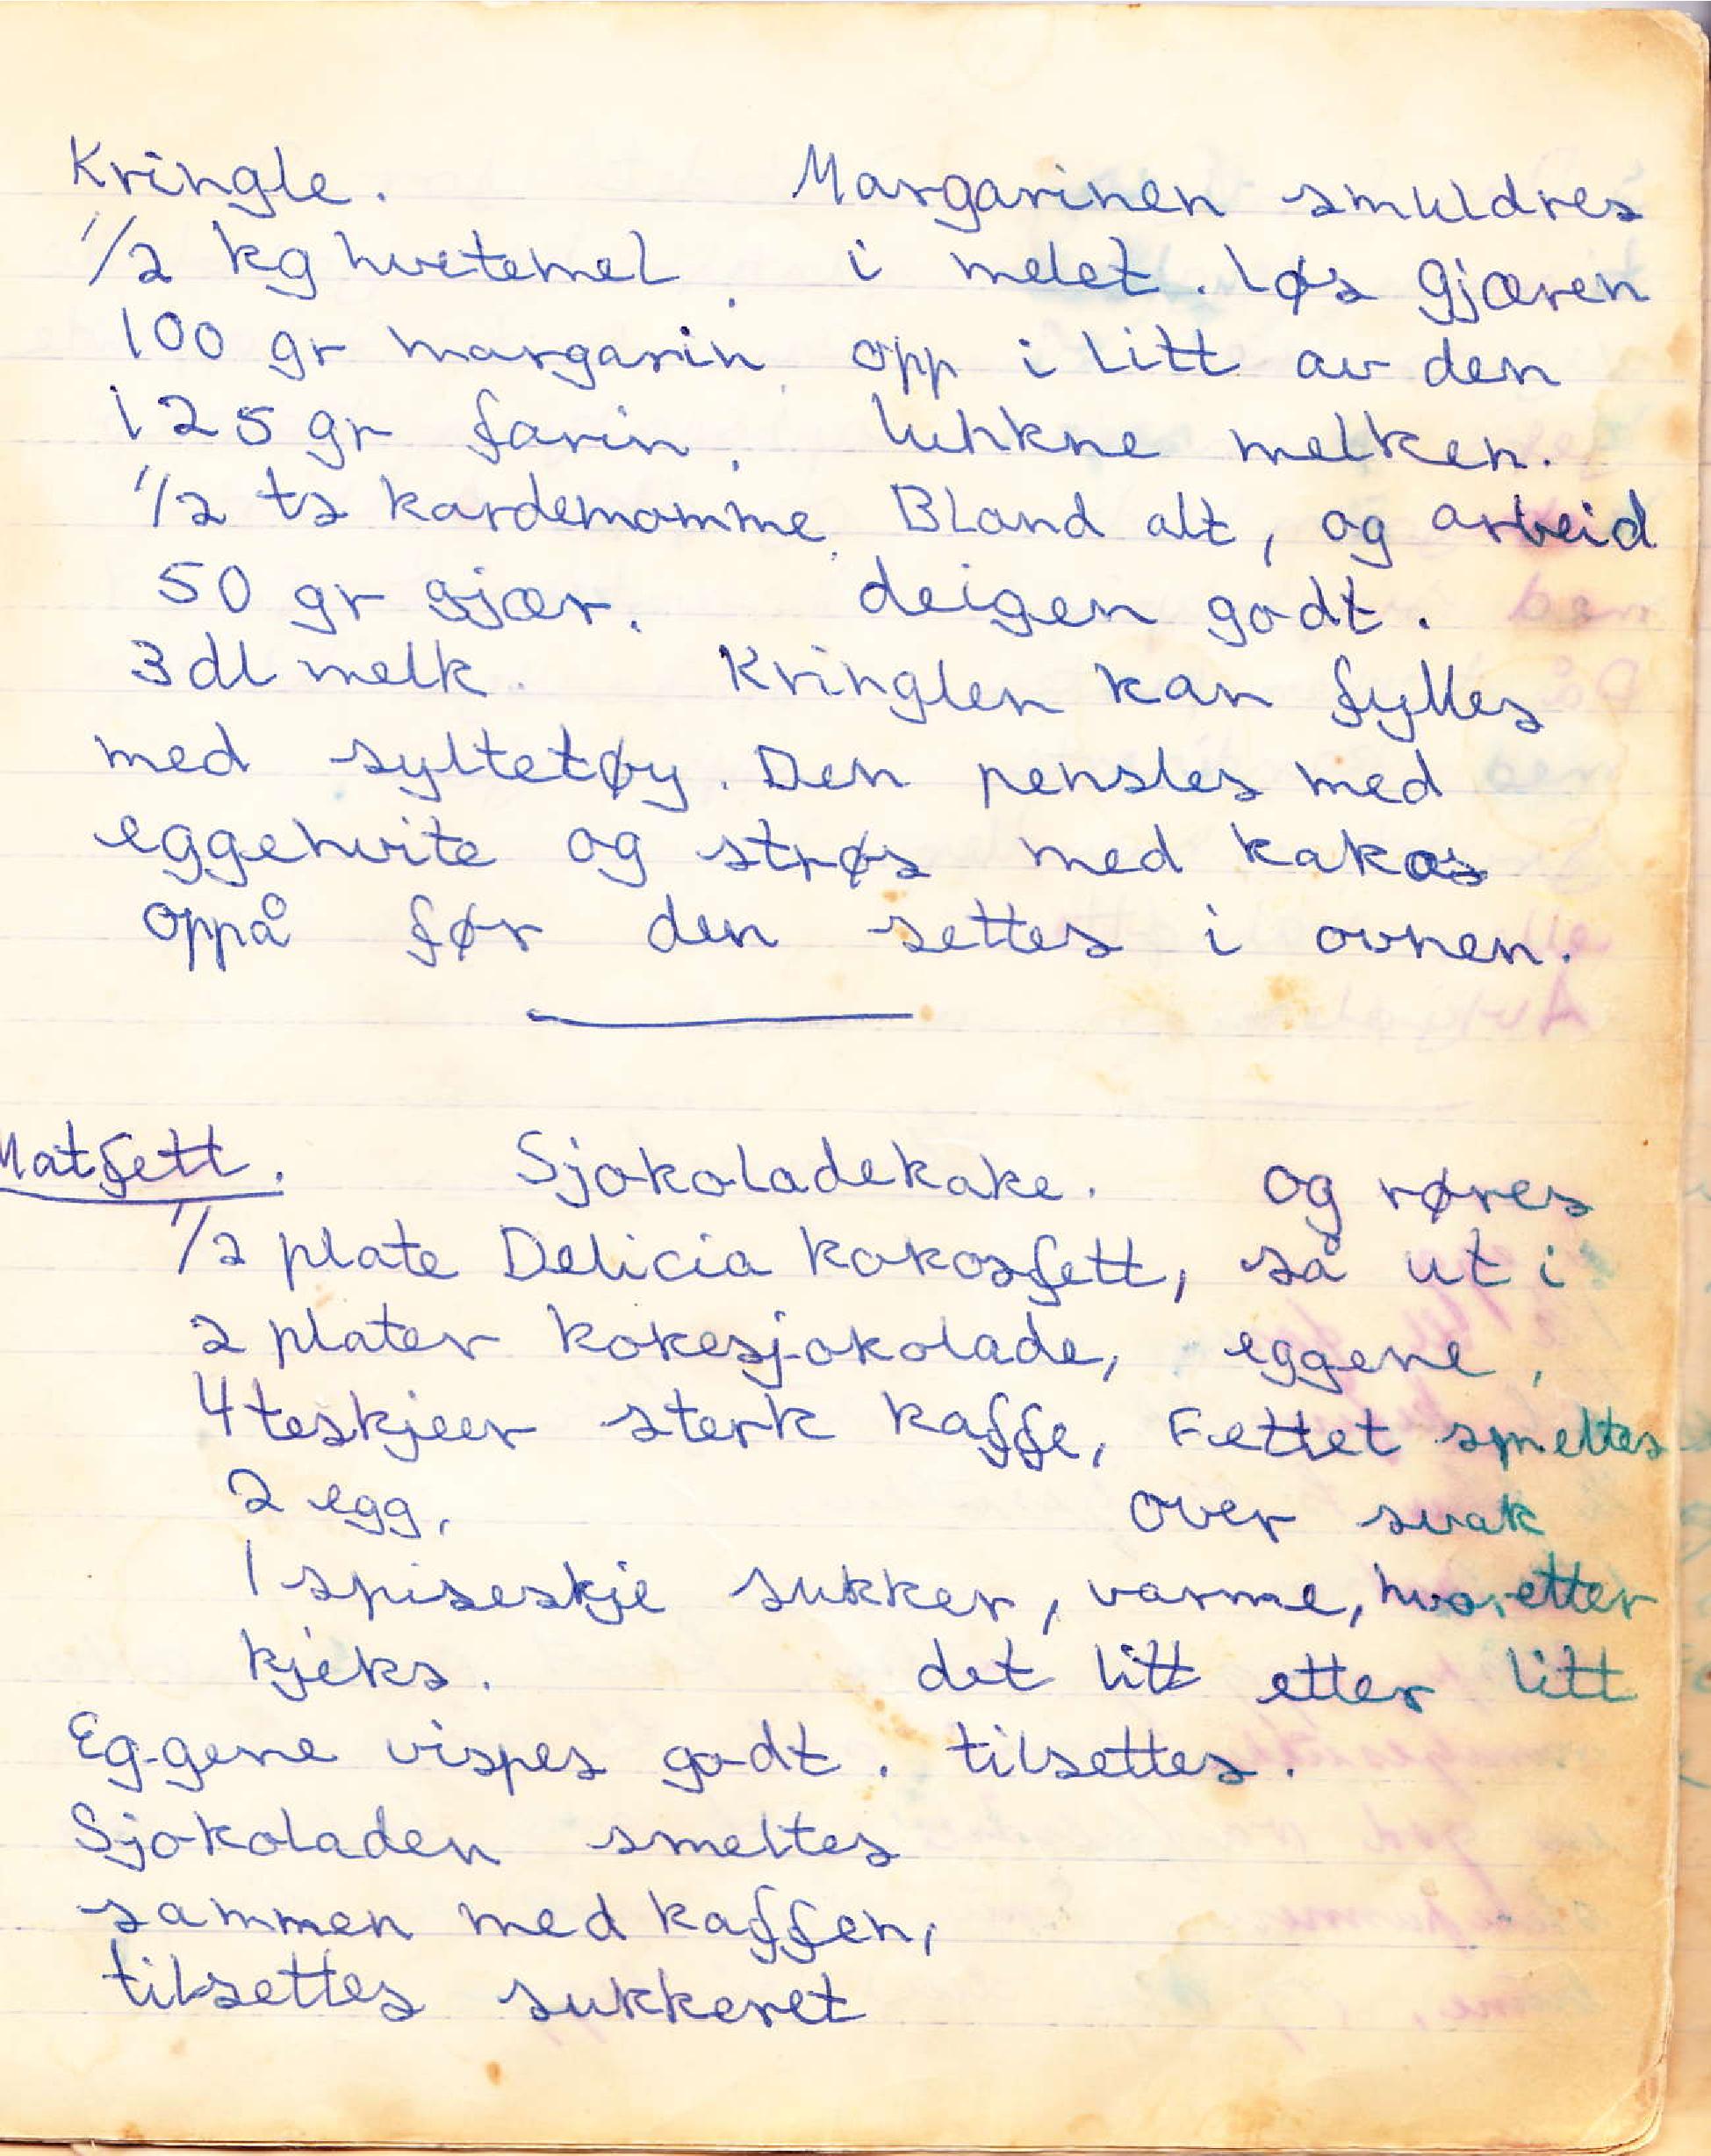 Kringle.
1/2 kg hvetemel.
100 gr margarin.
125 gr farin.
1/2 ts kardemomme.
50 gr gjær.
3 dl melk.
Margarinen smuldres
i melet. Løs gjæren
opp i litt av den
lunkne melken.
Bland alt, og arbeid
deigen godt.
Kringlen kan fylles
med syltetøy. Den pensles med
eggehvite og strøs med kakos
oppå før den settes i ovnen.
Matfett.
Sjokoladekake.
1/2 plate Delicia kokosfett,
2 plater kokesjokolade,
4 teskjeer sterk kaffe,
2 egg,
1 spiseskje sukker,
kjeks.
Eggene vispes godt.
Sjokoladen smeltes
sammen med kaffen,
tilsettes sukkeret
og røres
så ut i
eggene,
Fettet smeltes
over svak
varme, hvoretter
det litt etter litt
tilsettes.